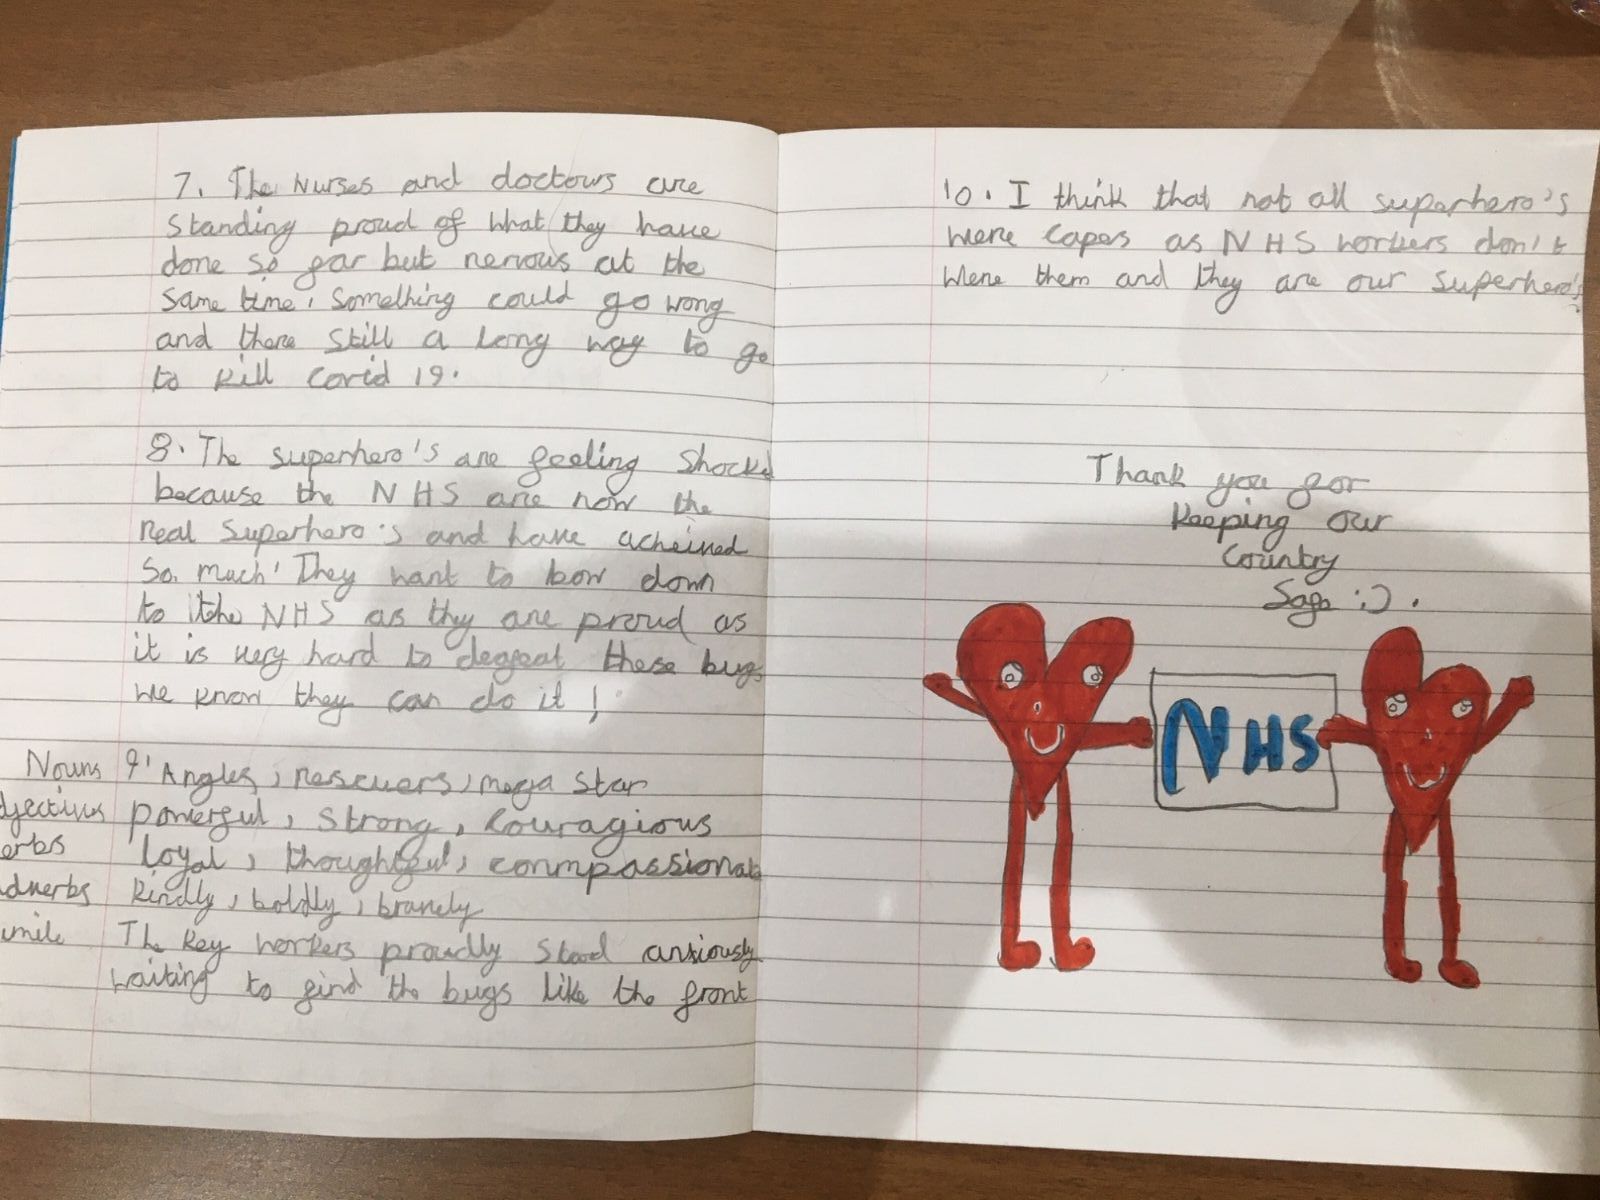 7. The Nurses and doctours are
standing proud of what they have
done so far but nervous at the
same time, something could go wong
and there still a long way to go
to kill Covid 19.
8. The superhero's are feeling shocked
because the NHS are now the
real superhero's and have acheived
so much! They want to bow down
to the NHS as they are proud as
it is very hard to defeat these bugs
we know they can do it!
Nouns 9. Angles, rescuers, mega star
djectives powerful, strong, couragious
erbs loyal, thoughtful, conmpassionate
dverbs kindly, boldly, bravely
imile The key workers proudly stood anxiously
waiting to find the bugs like the front
10. I think that not all superhero's
were capes as NHS workers don't
were them and they are our superhero's
Thank you for
keeping our
Country
Safe :) .
NHS